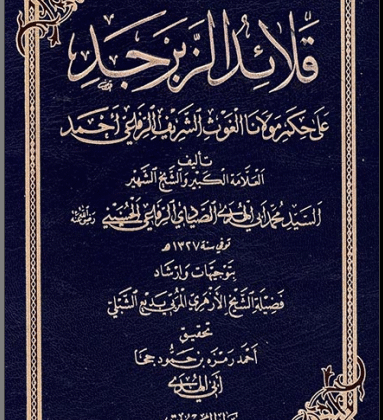 قلائد الزبرجد
على حكم مولانا الغوث الشريف الرفاعي أحمد
تأليف
العلامة الكبير والشيخ الشهير
السيد محمد أبي الهدى الصيادي الرفاعي الحسيني
توفي سنة ١٣٢٧هـ
بتوجيهات وإرشاد
فضيلة الشيخ الأزهري المربي بديع الشبلي
تحقيق
أحمد رمزه بن حمود جحا
أبي الهدى